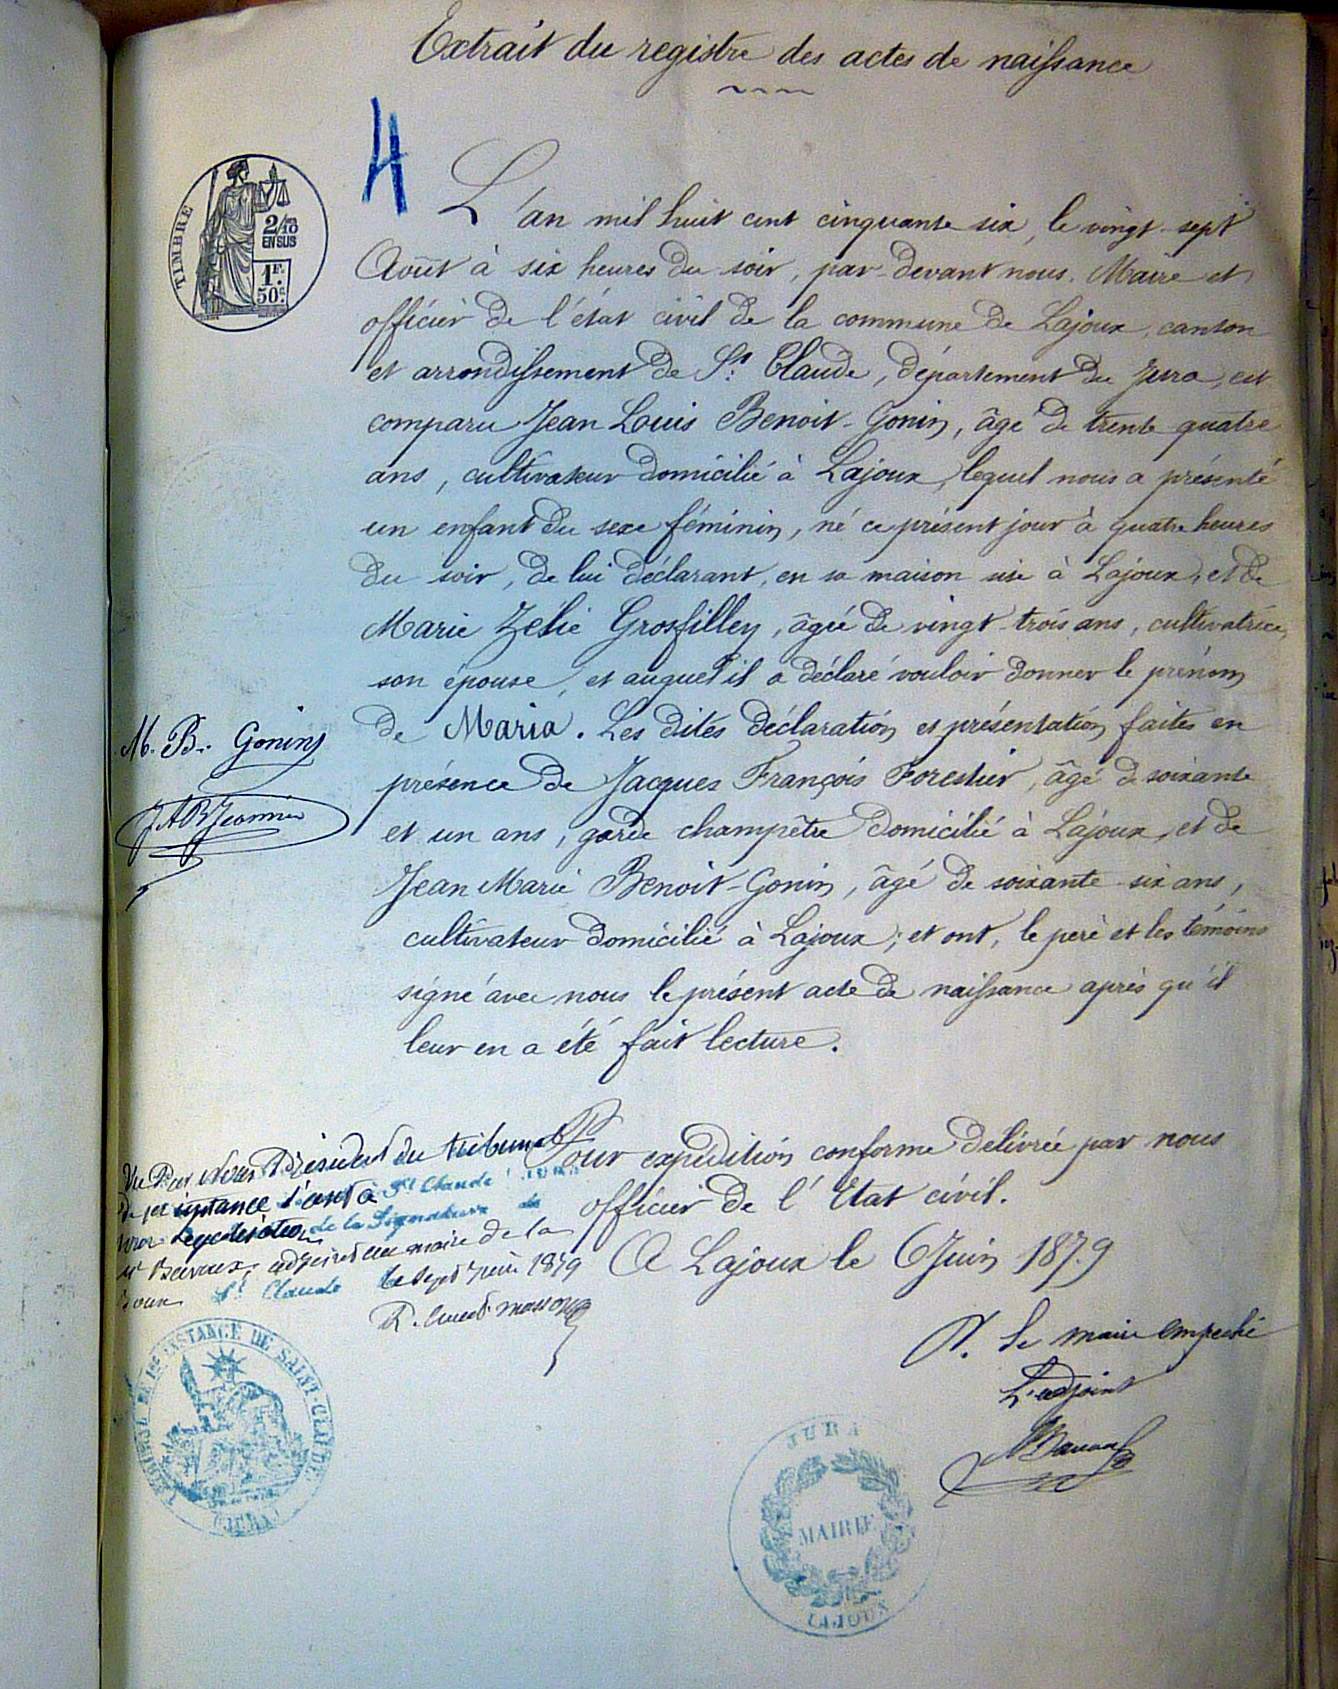 Extrait du registre des actes de naissance
4
TIMBRE
2/10
EN SUS
1F.
50c.
L'an mil huit cent cinquante six, le vingt-sept
Août à six heures du soir, par-devant nous, Maire et
officier de l'état civil de la commune de Lajoux, canton
et arrondissement de St. Claude, département du Jura, est
comparu Jean Louis Benoit-Gonin, âgé de trente quatre
ans, cultivateur domicilié à Lajoux, lequel nous a présenté
un enfant du sexe féminin, né ce présent jour à quatre heures
du soir, de lui déclarant, en sa maison sise à Lajoux, et de
Marie Zélie Grosfilley, âgée de vingt-trois ans, cultivatrice,
son épouse, et auquel il a déclaré vouloir donner le prénom
de Maria. Les dites déclaration et présentation faites en
présence de Jacques François Forestier, âgé de soixante
et un ans, garde champêtre domicilié à Lajoux, et de
Jean Marie Benoit-Gonin, âgé de soixante-six ans,
cultivateur domicilié à Lajoux; et ont, le père et les témoins
signé avec nous le présent acte de naissance après qu'il
leur en a été fait lecture.
M. B. Gonin
Pour expédition conforme délivrée par nous
officier de l'Etat civil.
A Lajoux le 6 Juin 1879
P. le maire empeché
L'adjoint
Vu Par Nous Président du tribunal
de 1ere instance séant à St Claude
pour légalisation de la Signature de
adjoint au maire de la
joux St Claude le sept juin 1879
TRIBUNAL DE 1ERE INSTANCE DE SAINT-CLAUDE
(JURA)
JURA
MAIRIE
LAJOUX